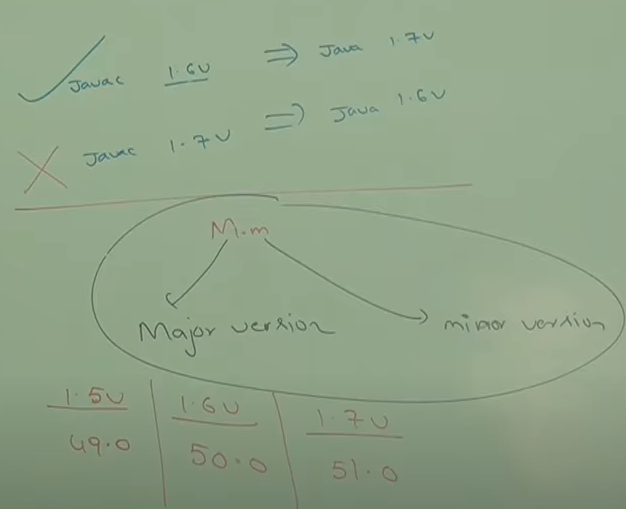 Javac 1.6v ⇒ Java 1.7v
Javac 1.7v ⇒ Java 1.6v
M.m
Major version minor version
1.5v 1.6v 1.7v
49.0 50.0 51.0